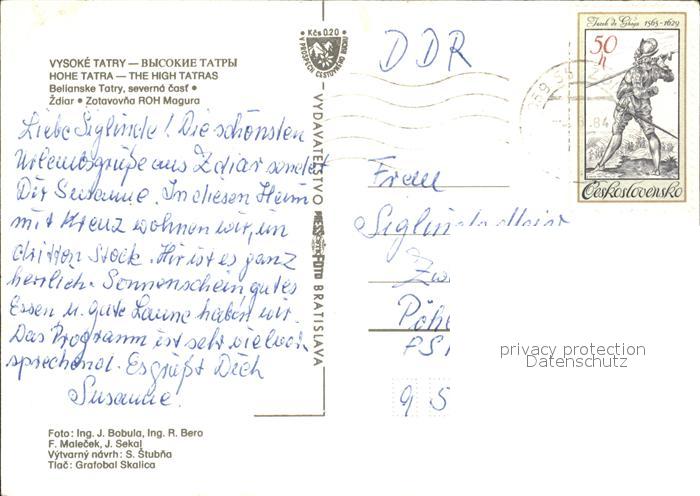 VYSOKÉ TATRY — ВЫСОКИЕ ТАТРЫ
HOHE TATRA — THE HIGH TATRAS
Belianske Tatry, severná časť •
Ždiar • Zotavovňa ROH Magura
• Kčs 0,20 •
V PROSPECH CESTOVNÉHO RUCHU
Liebe Siglinde! Die schönsten
Urlaubsgrüße aus Zdiar sendet
Dir Susanne. In diesen Heim
mit Kreuz wohnen wir, im
dritten Stock. Hir ist es ganz
herrlich. Sonnenschein gutes
Essen u. gute Laune haben wir.
Das Programm ist sehr vielver
sprechend. Es grüßt Dich
Susanne!
Foto: Ing. J. Bobula, Ing. R. Bero
F. Maleček, J. Sekal
Výtvarný návrh: S. Štubňa
Tlač: Grafobal Skalica
VYDAVATEĽSTVO PRESSFOTO BRATISLAVA
DDR
Jacob de Gheyn 1565-1629
50 h
Československo
84
Frau
Siglinde
Zw
Pöh
PS
9 5
privacy protection
Datenschutz